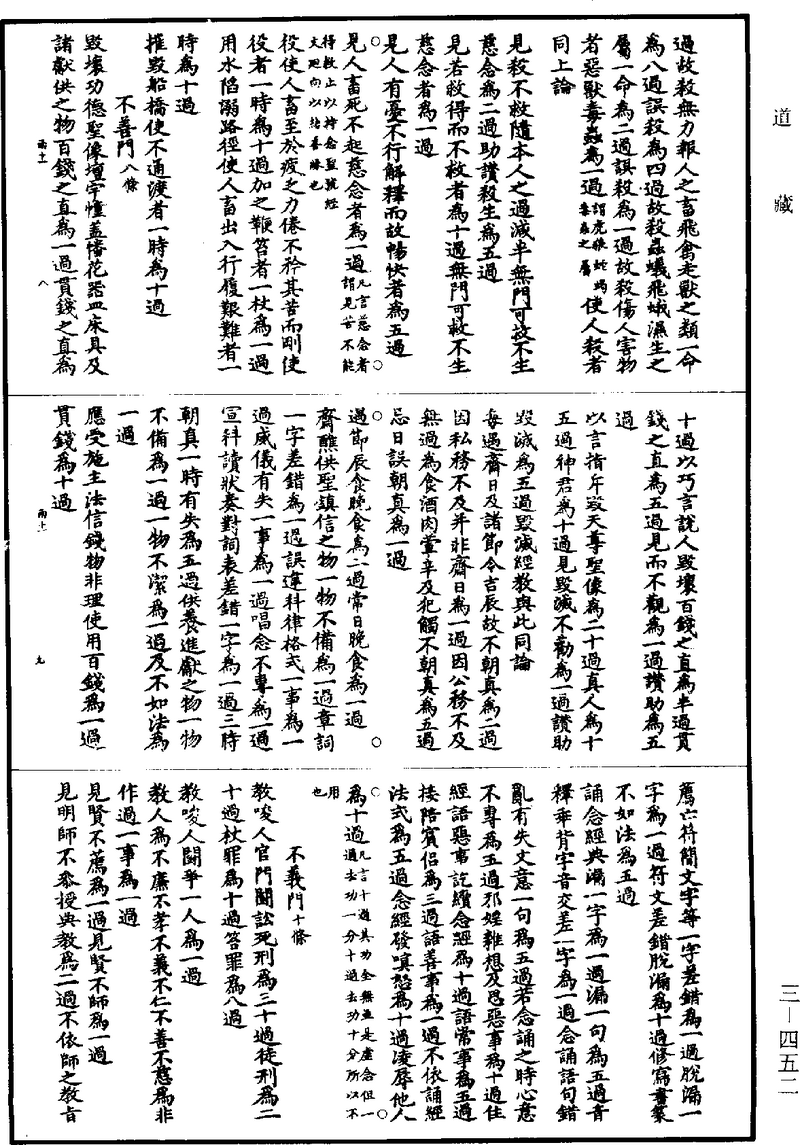 道藏
過故殺無力報人之畜飛禽走獸之類一命
為八過誤殺為四過故殺蟲蟻飛蛾濕生之
屬一命為二過誤殺為一過故殺傷人害物
者惡獸毒蟲為一過謂虎狼蛇蝎毒蟲之屬使人殺者
同上論
見殺不救隨本人之過減半無門可救不生
慈念為二過助讚殺生為五過
見若救得而不救者為十過無門可救不生
慈念者為一過
見人有憂不行解釋而故暢快者為五過
見人畜死不起慈念者為一過凡言慈念者謂見苦不能
得救止以持念聖號經文迴向以諸善緣也
役使人畜至於疲乏力倦不矜其苦而剛使
役者一時為十過加之鞭笞者一杖為一過
用水陷溺路徑使人畜出入行履艱難者一
時為十過
摧毀船橋使不通渡者一時為十過
不善門八條
毀壞功德聖像壇宇幢蓋幡花器皿床具及
諸獻供之物百錢之直為一過貫錢之直為
雨十一 八
十過以巧言說人毀壞百錢之直為半過貫
錢之直為五過見而不觀為一過讚助為五
過
以言指斥毀天尊聖像為二十過真人為十
五過神君為十過見毀滅不勸為一過讚助
毀滅為五過毀滅經教與此同論
每遇齋日及諸節令吉辰故不朝真為二過
因私務不及并非齋日為一過因公務不及
無過為食酒肉葷辛及犯觸不朝真為五過
忌日誤朝真為一過
遇節辰食晚食為二過常日晚食為一過
齋醮供聖鎮信之物一物不備為一過章詞
一字差錯為一過誤違科律格式一事為一
過威儀有失一事為一過唱念不專為一過
宣科讀狀奏對詞表差錯一字為一過三時
朝真一時有失為五過供養進獻之物一物
不備為一過一物不潔為一過及不如法為
一過
應受施主法信錢物非理使用百錢為一過
貫錢為十過
雨十一 九
薦亡符簡文字等一字差錯為一過脫漏一
字為一過符文差錯脫漏為十過修寫書篆
不如法為五過
誦念經典漏一字為一過漏一句為五過音
釋乖背字音交差一字為一過念誦語句錯
亂有失文意一句為五過若念誦之時心意
不專為五過邪婬雜想及思惡事為十過住
經語惡事訖續念經為十過語常事為五過
接陪賓侶為三過語善事為一過不依誦經
法式為五過念經發嗔怒為十過凌辱他人
為十過凡言十過其功全無並是虛念但一過去功一分十過去功十分所以不
用也
不義門十條
教唆人官門鬭訟死刑為三十過徒刑為二
十過杖罪為十過笞罪為八過
教唆人鬭爭一人為一過
教人為不廉不孝不義不仁不善不慈為非
作過一事為一過
見賢不薦為一過見賢不師為一過
見明師不參授典教為二過不依師之教旨
三—四五二